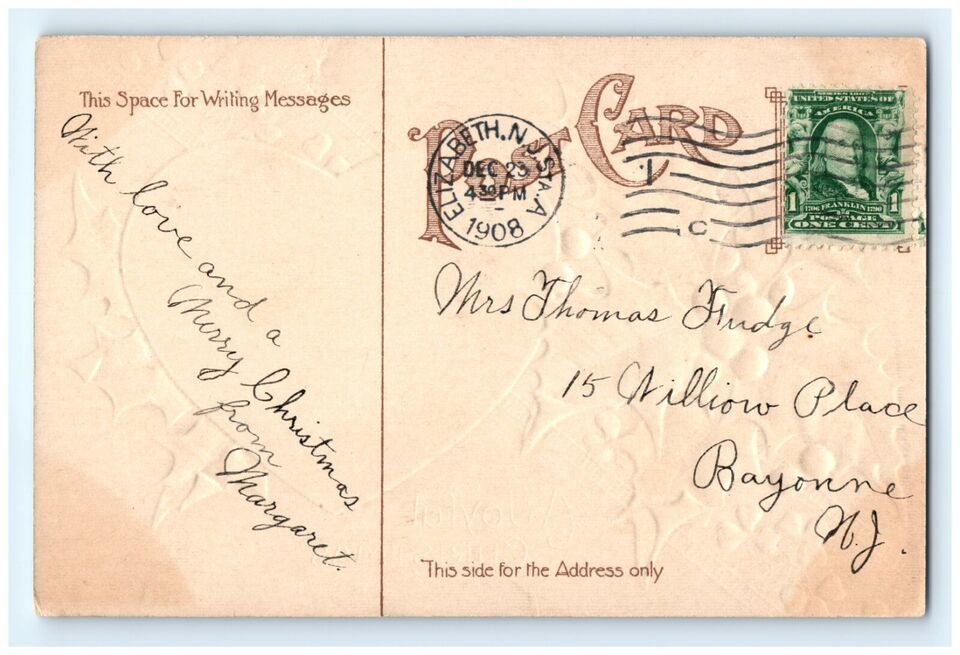 This Space For Writing Messages
With love and a
Merry Christmas
from
Margaret.
POST CARD
ELIZABETH, N.J. STA. A
DEC 23
4 30 PM
1908
1
C
SERIES 1902
UNITED STATES OF
AMERICA
1706 FRANKLIN 1790
1 POSTAGE 1
ONE CENT
Mrs Thomas Fudge
15 Williow Place
Bayonne
N.J.
A Joyful
This side for the Address only